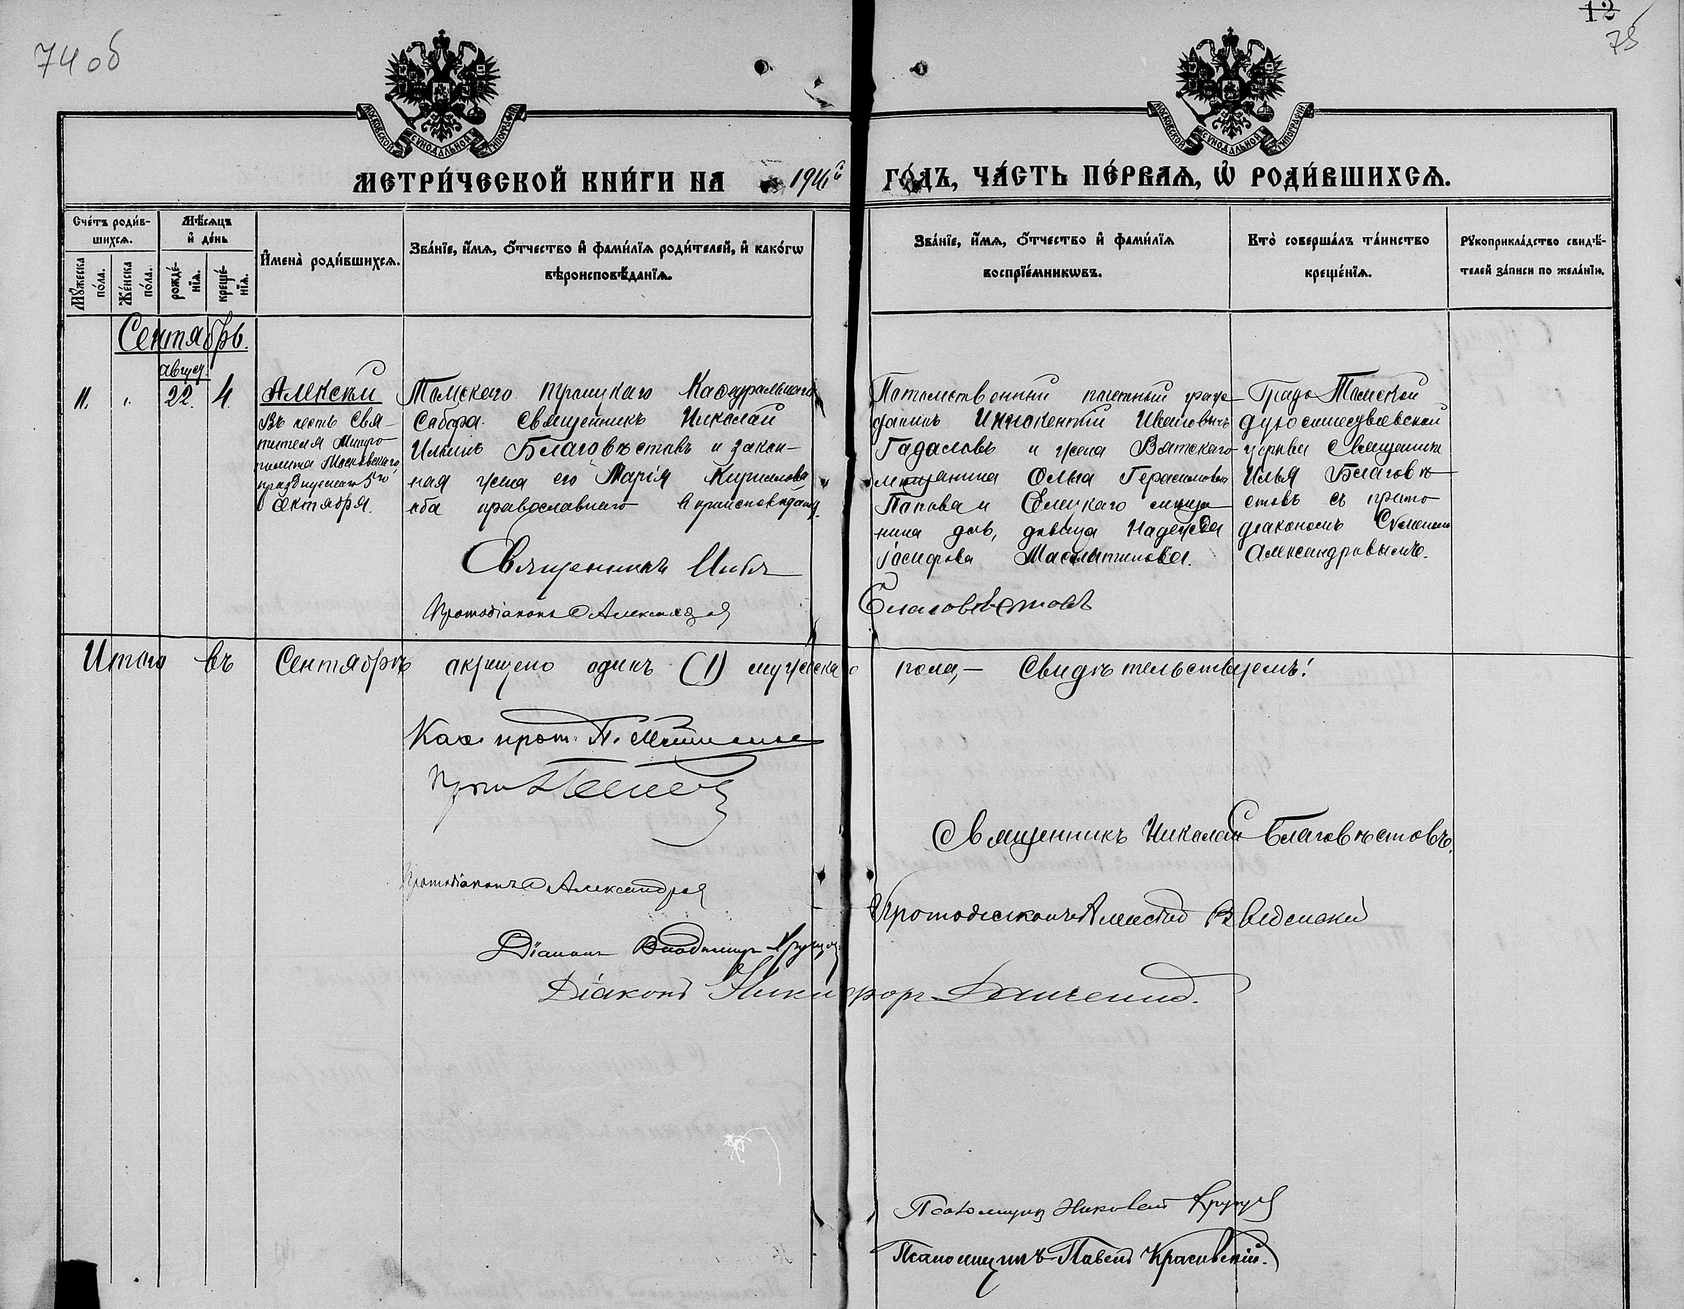 74 об
12
75
МОСКОВСКОЙ СѴНОДАЛЬНОЙ ТИПОГРАФІИ
МОСКОВСКОЙ СѴНОДАЛЬНОЙ ТИПОГРАФІИ
МЕТРИ́ЧЕСКОЙ КНИ́ГИ НА 191 й ГО́ДЪ, ЧА́СТЬ ПЕ́РВАѦ, Ѡ҆ РОДИ́ВШИХСѦ.
Сче́тъ роди́в-
шихсѧ.
Мꙋ́жеска по́ла.
Же́нска по́ла.
Мѣ́сѧцъ
и҆ де́нь
рожде́-
нїѧ.
креще́-
нїѧ.
И҆мена̀ роди́вшихсѧ.
Зва́нїе, и҆́мѧ, ѻ҆́тчество и҆ фами́лїѧ роди́телей, и҆ како́гѡ
вѣроисповѣ́данїѧ.
Зва́нїе, и҆́мѧ, ѻ҆́тчество и҆ фами́лїѧ
воспрїе́мникѡвъ.
Кто̀ соверша́лъ та́инство
креще́нїѧ.
Рꙋкоприкла́дство свидѣ́-
телей за́писи по жела́нїю.
Сентябрь.
август.
11.
22.
4.
Алексѣй
Въ честь Свя
тителя Митро-
полита Московскаго,
празднуемаго 5го
Октября.
Томского Троицкаго Каѳедральнаго
Собора Священникъ Николай
Ильинъ Благовѣстовъ и закон-
ная жена его Марія Кириллова
оба православнаго вѣроисповѣданія.
Потомственный почетный граж
данинъ Иннокентій Ивановичъ
Гадаловъ и жена Вятскаго
мѣщанина Ольга Герасимовна
Попова и Елецкаго мѣща
нина дочь, дѣвица Надежда
Градо Томской
Духосошественской
церкви Священникъ
Илья Благовѣ
стовъ съ прото
діакономъ
Александровымъ.
Священникъ Илья
Благовѣстовъ
Протодіаконъ Александровъ
Итого въ Сентябрѣ окрещено одинъ (1) мужеска пола, — Свидѣтельствуемъ:
Каѳ. прот. П.
Священникъ Николай Благовѣстовъ.
Протодіаконъ Александровъ
Протодіаконъ Алексѣй Введенскій
Діаконъ Владимиръ
Діаконъ Никифоръ
Псаломщикъ Николай
Псаломщикъ Павелъ Красивскій.